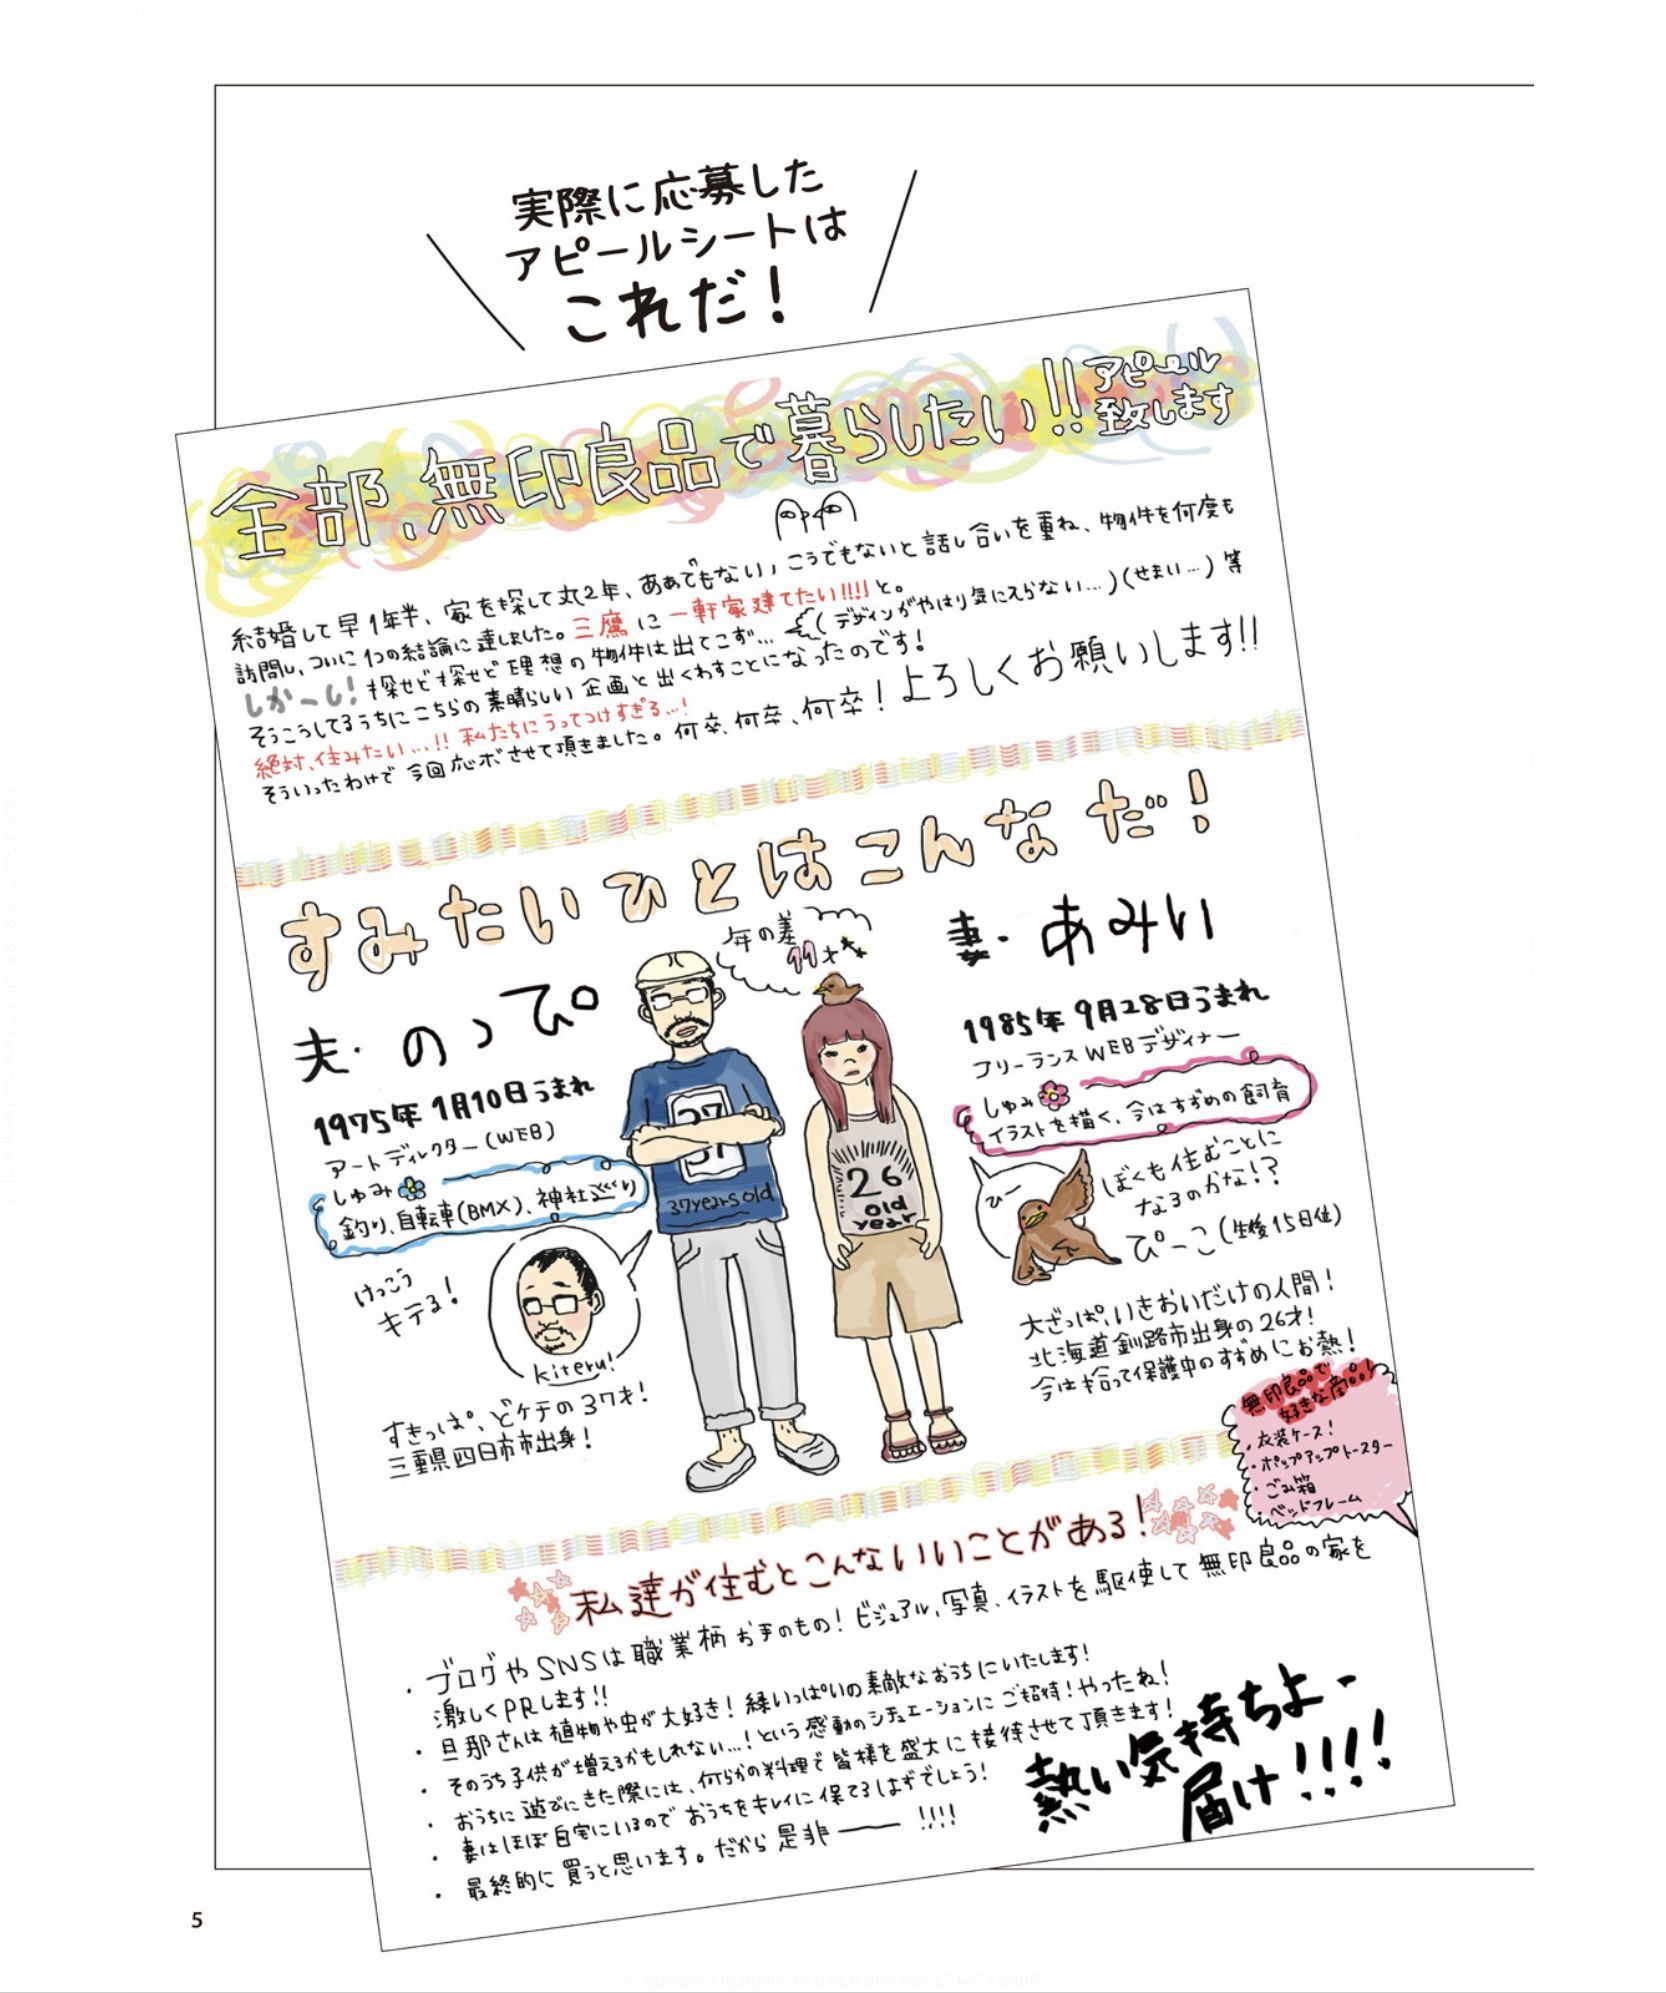 実際に応募した
アピールシートは
これだ!
全部、無印良品で暮らしたい!!
アピール
致します
結婚して早1年半、家を探して丸2年、ああでもない、こうでもないと話し合いを重ね、物件を何度も
訪問し、ついに1つの結論に達しました。三鷹に一軒家建てたい!!!!と。
しかーし!探せど探せど理想の物件は出てこず…(デザインがやはり気に入らない…)(せまい…)等
そうこうしてるうちにこちらの素晴らしい企画と出くわすことになったのです!
絶対、住みたい…!!私たちにうってつけすぎる…!
そういったわけで今回応ボさせて頂きました。何卒、何卒、何卒!よろしくお願いします!!
すみたいひとはこんなだ!
年の差
11才
夫・のっぴ
1975年1月10日うまれ
アートディレクター(WEB)
しゅみ
釣り、自転車(BMX)、神社巡り
けっこう
キテる!
kiteru!
すきっぱ、どケチの37才!
三重県四日市市出身!
37
37
37years old
26
old
year
妻・あみい
1985年9月28日うまれ
フリーランスWEBデザイナー
しゅみ
イラストを描く、今はすずめの飼育
ぴー
ぼくも住むことに
なるのかな!?
ぴーこ(生後15日位)
大ざっぱ、いきおいだけの人間!
北海道釧路市出身の26才!
今は拾って保護中のすずめにお熱!
無印良品で
好きな商品!
・衣装ケース!
・ポップアップトースター
・ごみ箱
・ベッドフレーム
私達が住むとこんないいことがある!
・ブログやSNSは職業柄お手のもの!ビジュアル、写真、イラストを駆使して無印良品の家を
激しくPRします!!
・旦那さんは植物や虫が大好き!緑いっぱいの素敵なおうちにいたします!
・そのうち子供が増えるかもしれない…!という感動のシチュエーションにご招待!やったね!
・おうちに遊びにきた際には、何らかの料理で皆様を盛大に接待させて頂きます!
・妻はほぼ自宅にいるのでおうちをキレイに保てるはずでしょう!
・最終的に買うと思います。だから是非――!!!!
熱い気持ちよー
届け!!!!
5